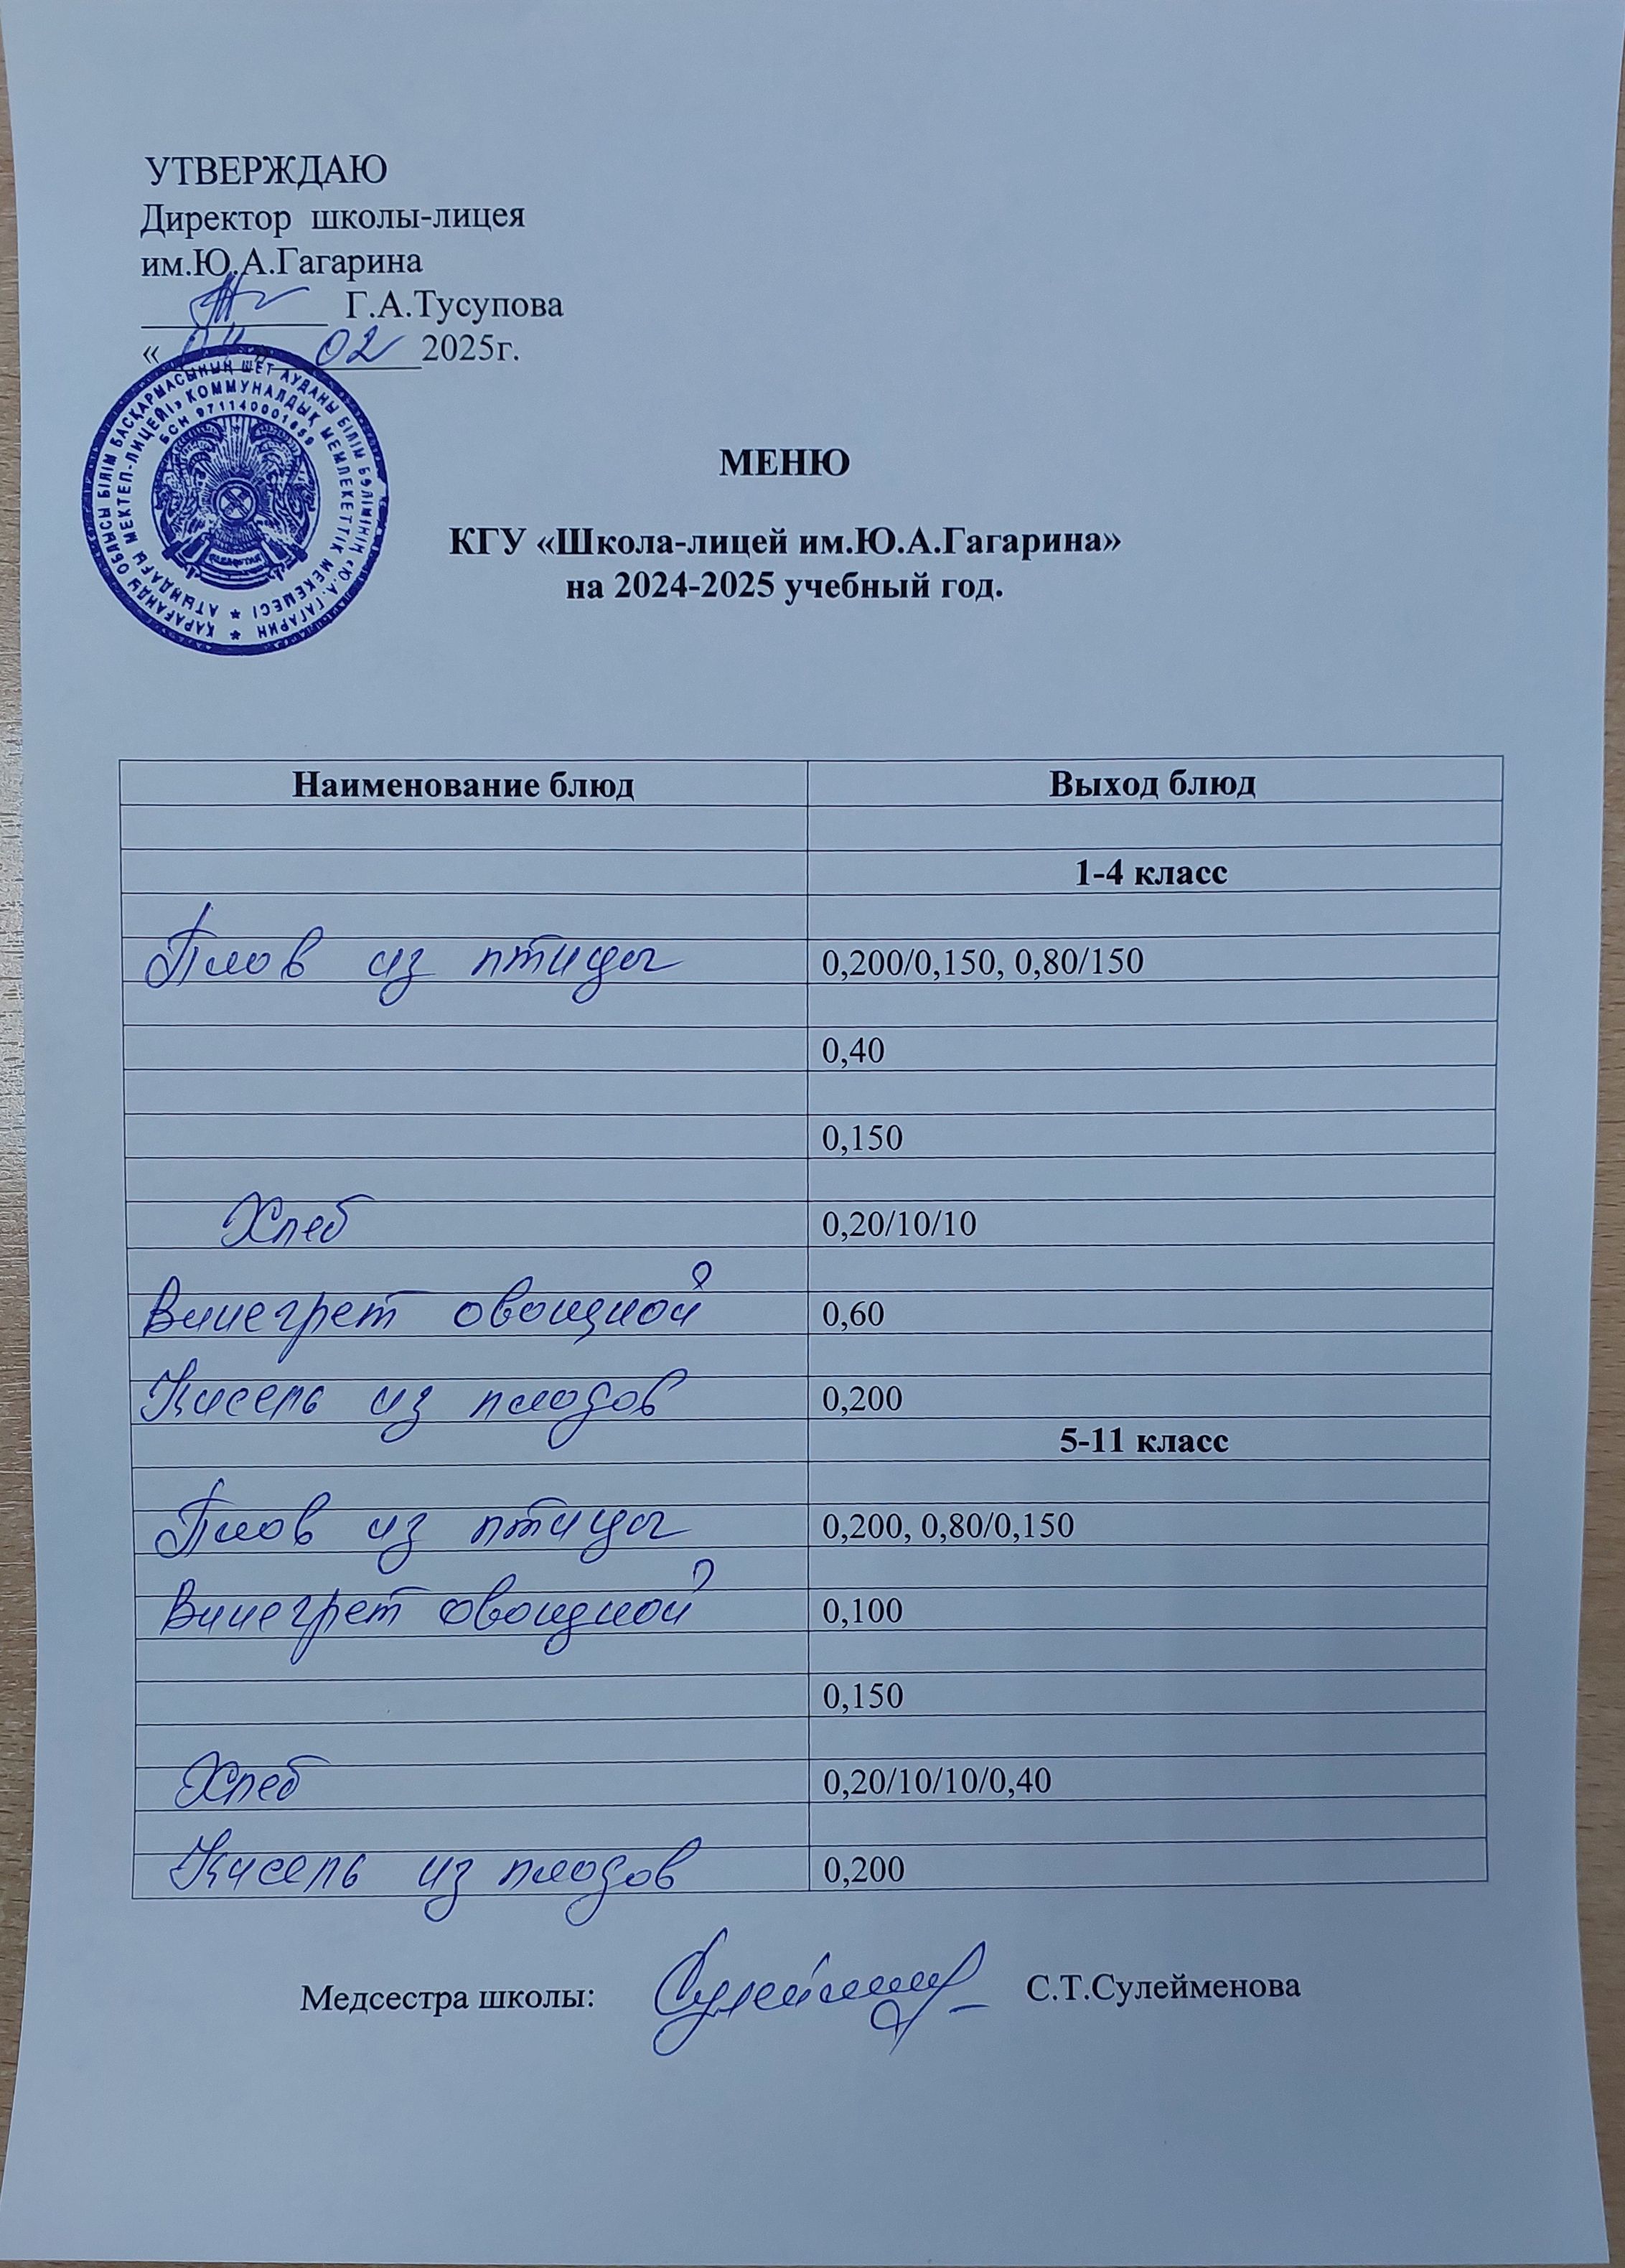 УТВЕРЖДАЮ
Директор школы-лицея
им.Ю.А.Гагарина
Г.А.Тусупова
« » 02 2025г.
ҚАРАҒАНДЫ ОБЛЫСЫ БІЛІМ БАСҚАРМАСЫНЫҢ ШЕТ АУДАНЫ БІЛІМ БӨЛІМІНІҢ «Ю.А.ГАГАРИН
АТЫНДАҒЫ МЕКТЕП-ЛИЦЕЙІ» КОММУНАЛДЫҚ МЕМЛЕКЕТТІК МЕКЕМЕСІ
БСН 971140001659
МЕНЮ
КГУ «Школа-лицей им.Ю.А.Гагарина»
на 2024-2025 учебный год.
Наименование блюд Выход блюд
1-4 класс
Плов из птицы 0,200/0,150, 0,80/150
0,40
0,150
Хлеб 0,20/10/10
Винегрет овощной 0,60
Кисель из плодов 0,200
5-11 класс
Плов из птицы 0,200, 0,80/0,150
Винегрет овощной 0,100
0,150
Хлеб 0,20/10/10/0,40
Кисель из плодов 0,200
Медсестра школы: С.Т.Сулейменова